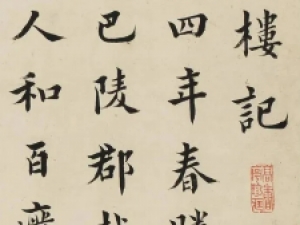 樓記
四年春滕
巴陵郡越
人和百廢